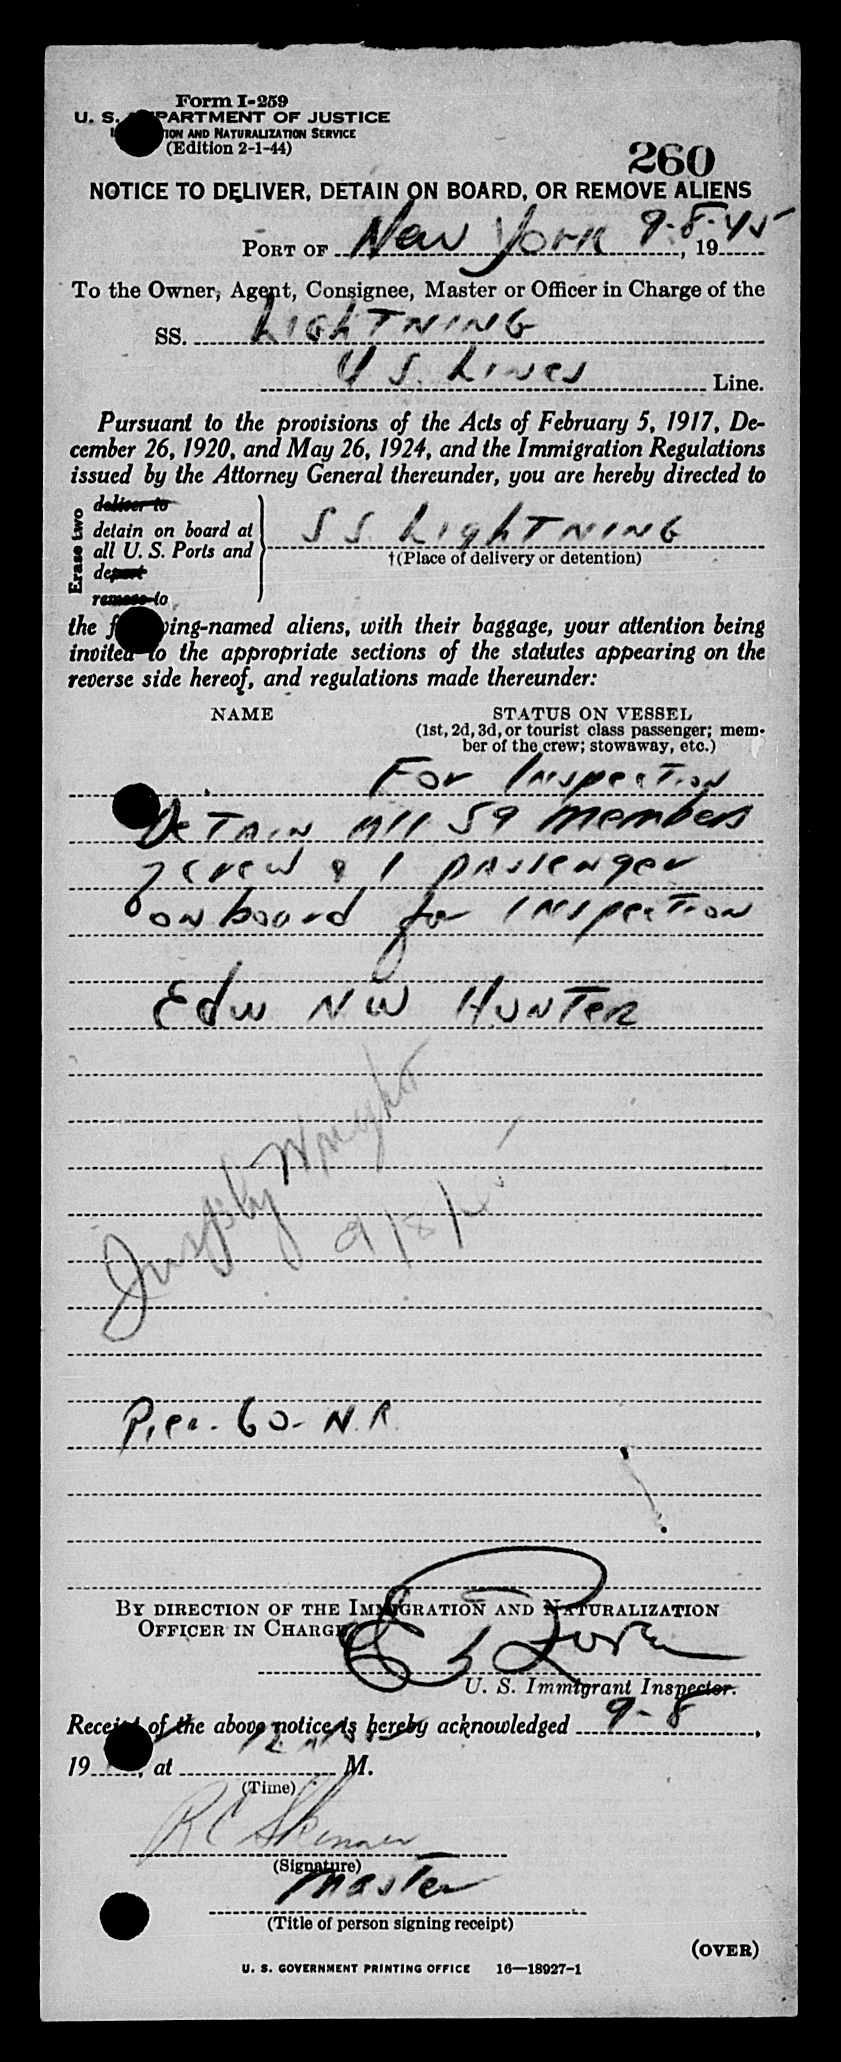 Form I-259
U. S. DEPARTMENT OF JUSTICE
AND NATURALIZATION SERVICE
(Edition 2-1-44)
260
NOTICE TO DELIVER, DETAIN ON BOARD, OR REMOVE ALIENS
PORT OF New York 9-8-45, 19
To the Owner, Agent, Consignee, Master or Officer in Charge of the
SS. LIGHTNING
U S. Lines Line.
Pursuant to the provisions of the Acts of February 5, 1917, De-
cember 26, 1920, and May 26, 1924, and the Immigration Regulations
issued by the Attorney General thereunder, you are hereby directed to
Erase two
deliver to
detain on board at
all U. S. Ports and
depart
remove to
SS. LighTNING
†(Place of delivery or detention)
the following-named aliens, with their baggage, your attention being
invited to the appropriate sections of the statutes appearing on the
reverse side hereof, and regulations made thereunder:
NAME STATUS ON VESSEL
(1st, 2d, 3d, or tourist class passenger; mem-
ber of the crew; stowaway, etc.)
For Inspection
DeTain All 59 members
crew & 1 passenger
on board for Inspection
Edw NW HUNTER
Wright
9/8/45
Pier. 60- N. R.
BY DIRECTION OF THE IMMIGRATION AND NATURALIZATION
OFFICER IN CHARGE
U. S. Immigrant Inspector.
Receipt of the above notice is hereby acknowledged 9-8,
19, at 12 M.
(Time)
R C Skinner
(Signature)
Master
(Title of person signing receipt)
(OVER)
U. S. GOVERNMENT PRINTING OFFICE 16—18927-1